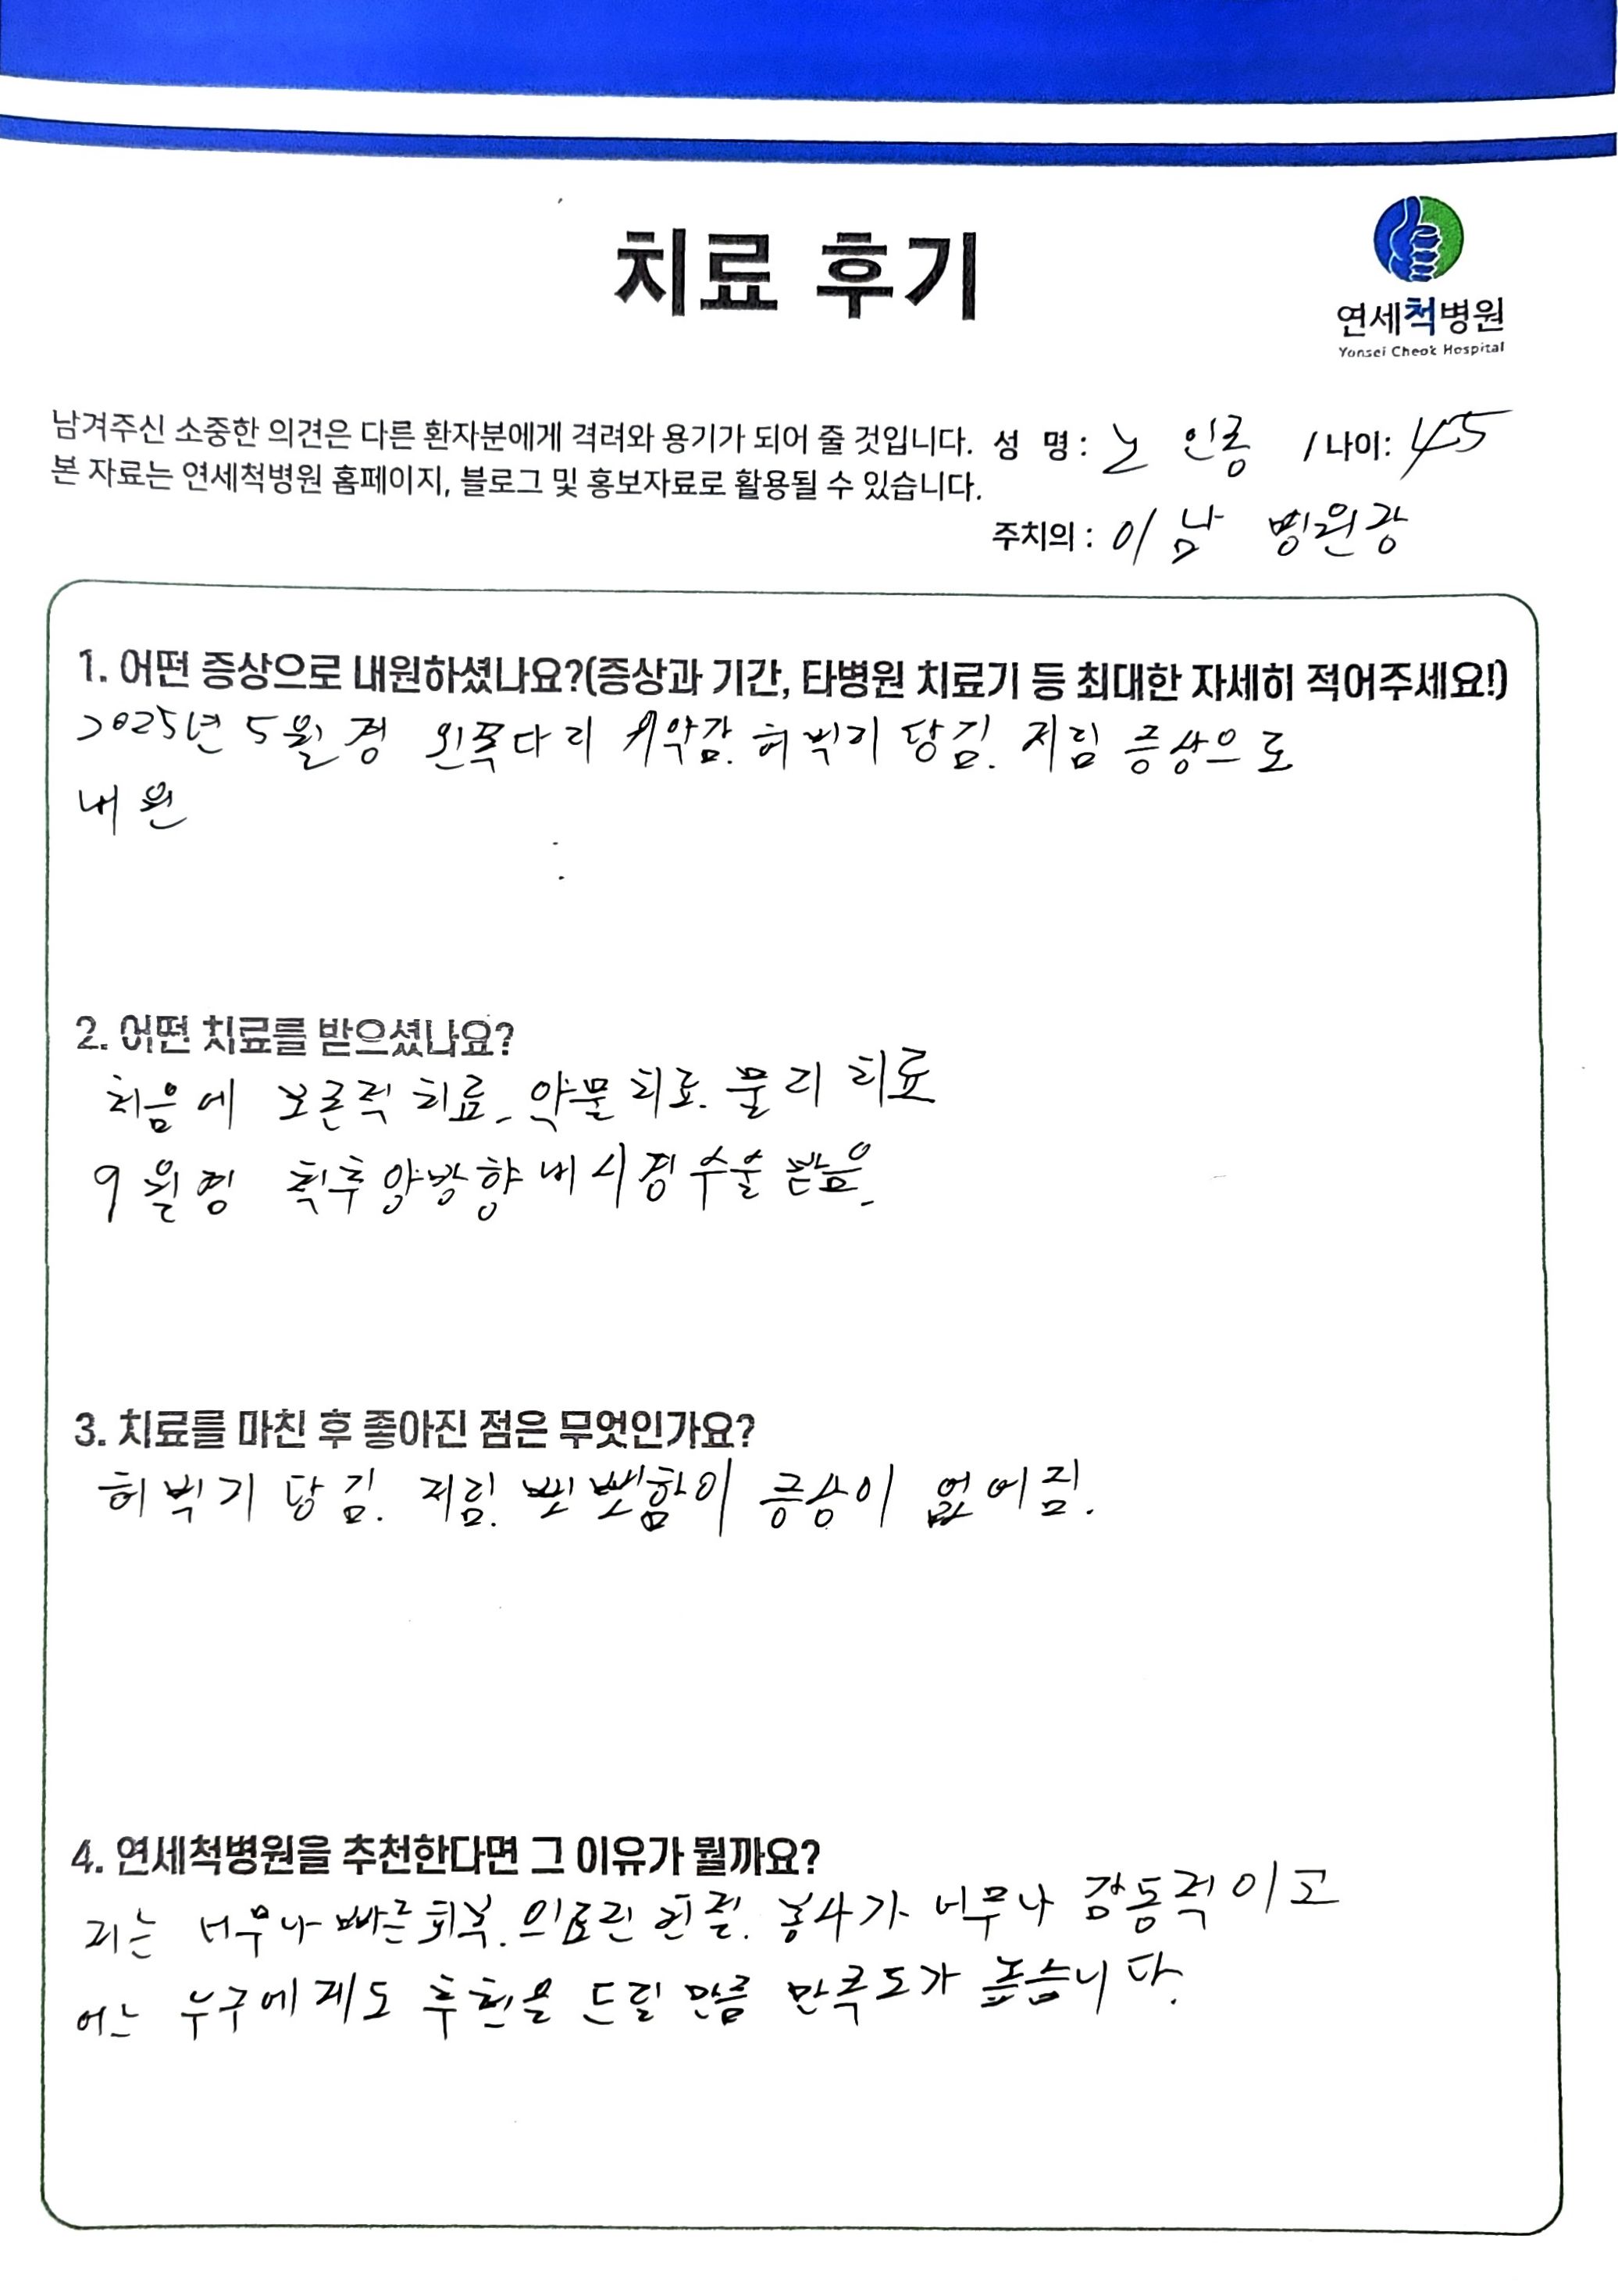 치료 후기
연세척병원
Yonsei Cheok Hospital
남겨주신 소중한 의견은 다른 환자분에게 격려와 용기가 되어 줄 것입니다. 성 명 : 노 인 / 나이: 45
본 자료는 연세척병원 홈페이지, 블로그 및 홍보자료로 활용될 수 있습니다.
주치의 : 이 남 병원장
1. 어떤 증상으로 내원하셨나요?(증상과 기간, 타병원 치료기 등 최대한 자세히 적어주세요!)
2025년 5월경 왼쪽다리 위약감. 허벅지 당김. 저림 증상으로
내원
2. 어떤 치료를 받으셨나요?
처음에 보존적 치료. 약물치료. 물리치료
9월경 척추양방향내시경수술 받음.
3. 치료를 마친 후 좋아진 점은 무엇인가요?
허벅지 당김. 저림. 뻣뻣함이 증상이 없어짐.
4. 연세척병원을 추천한다면 그 이유가 뭘까요?
저는 너무나 빠른 회복. 의료진 친절. 봉사가 너무나 감동적이고
어느 누구에게도 추천을 드릴 만큼 만족도가 높습니다.